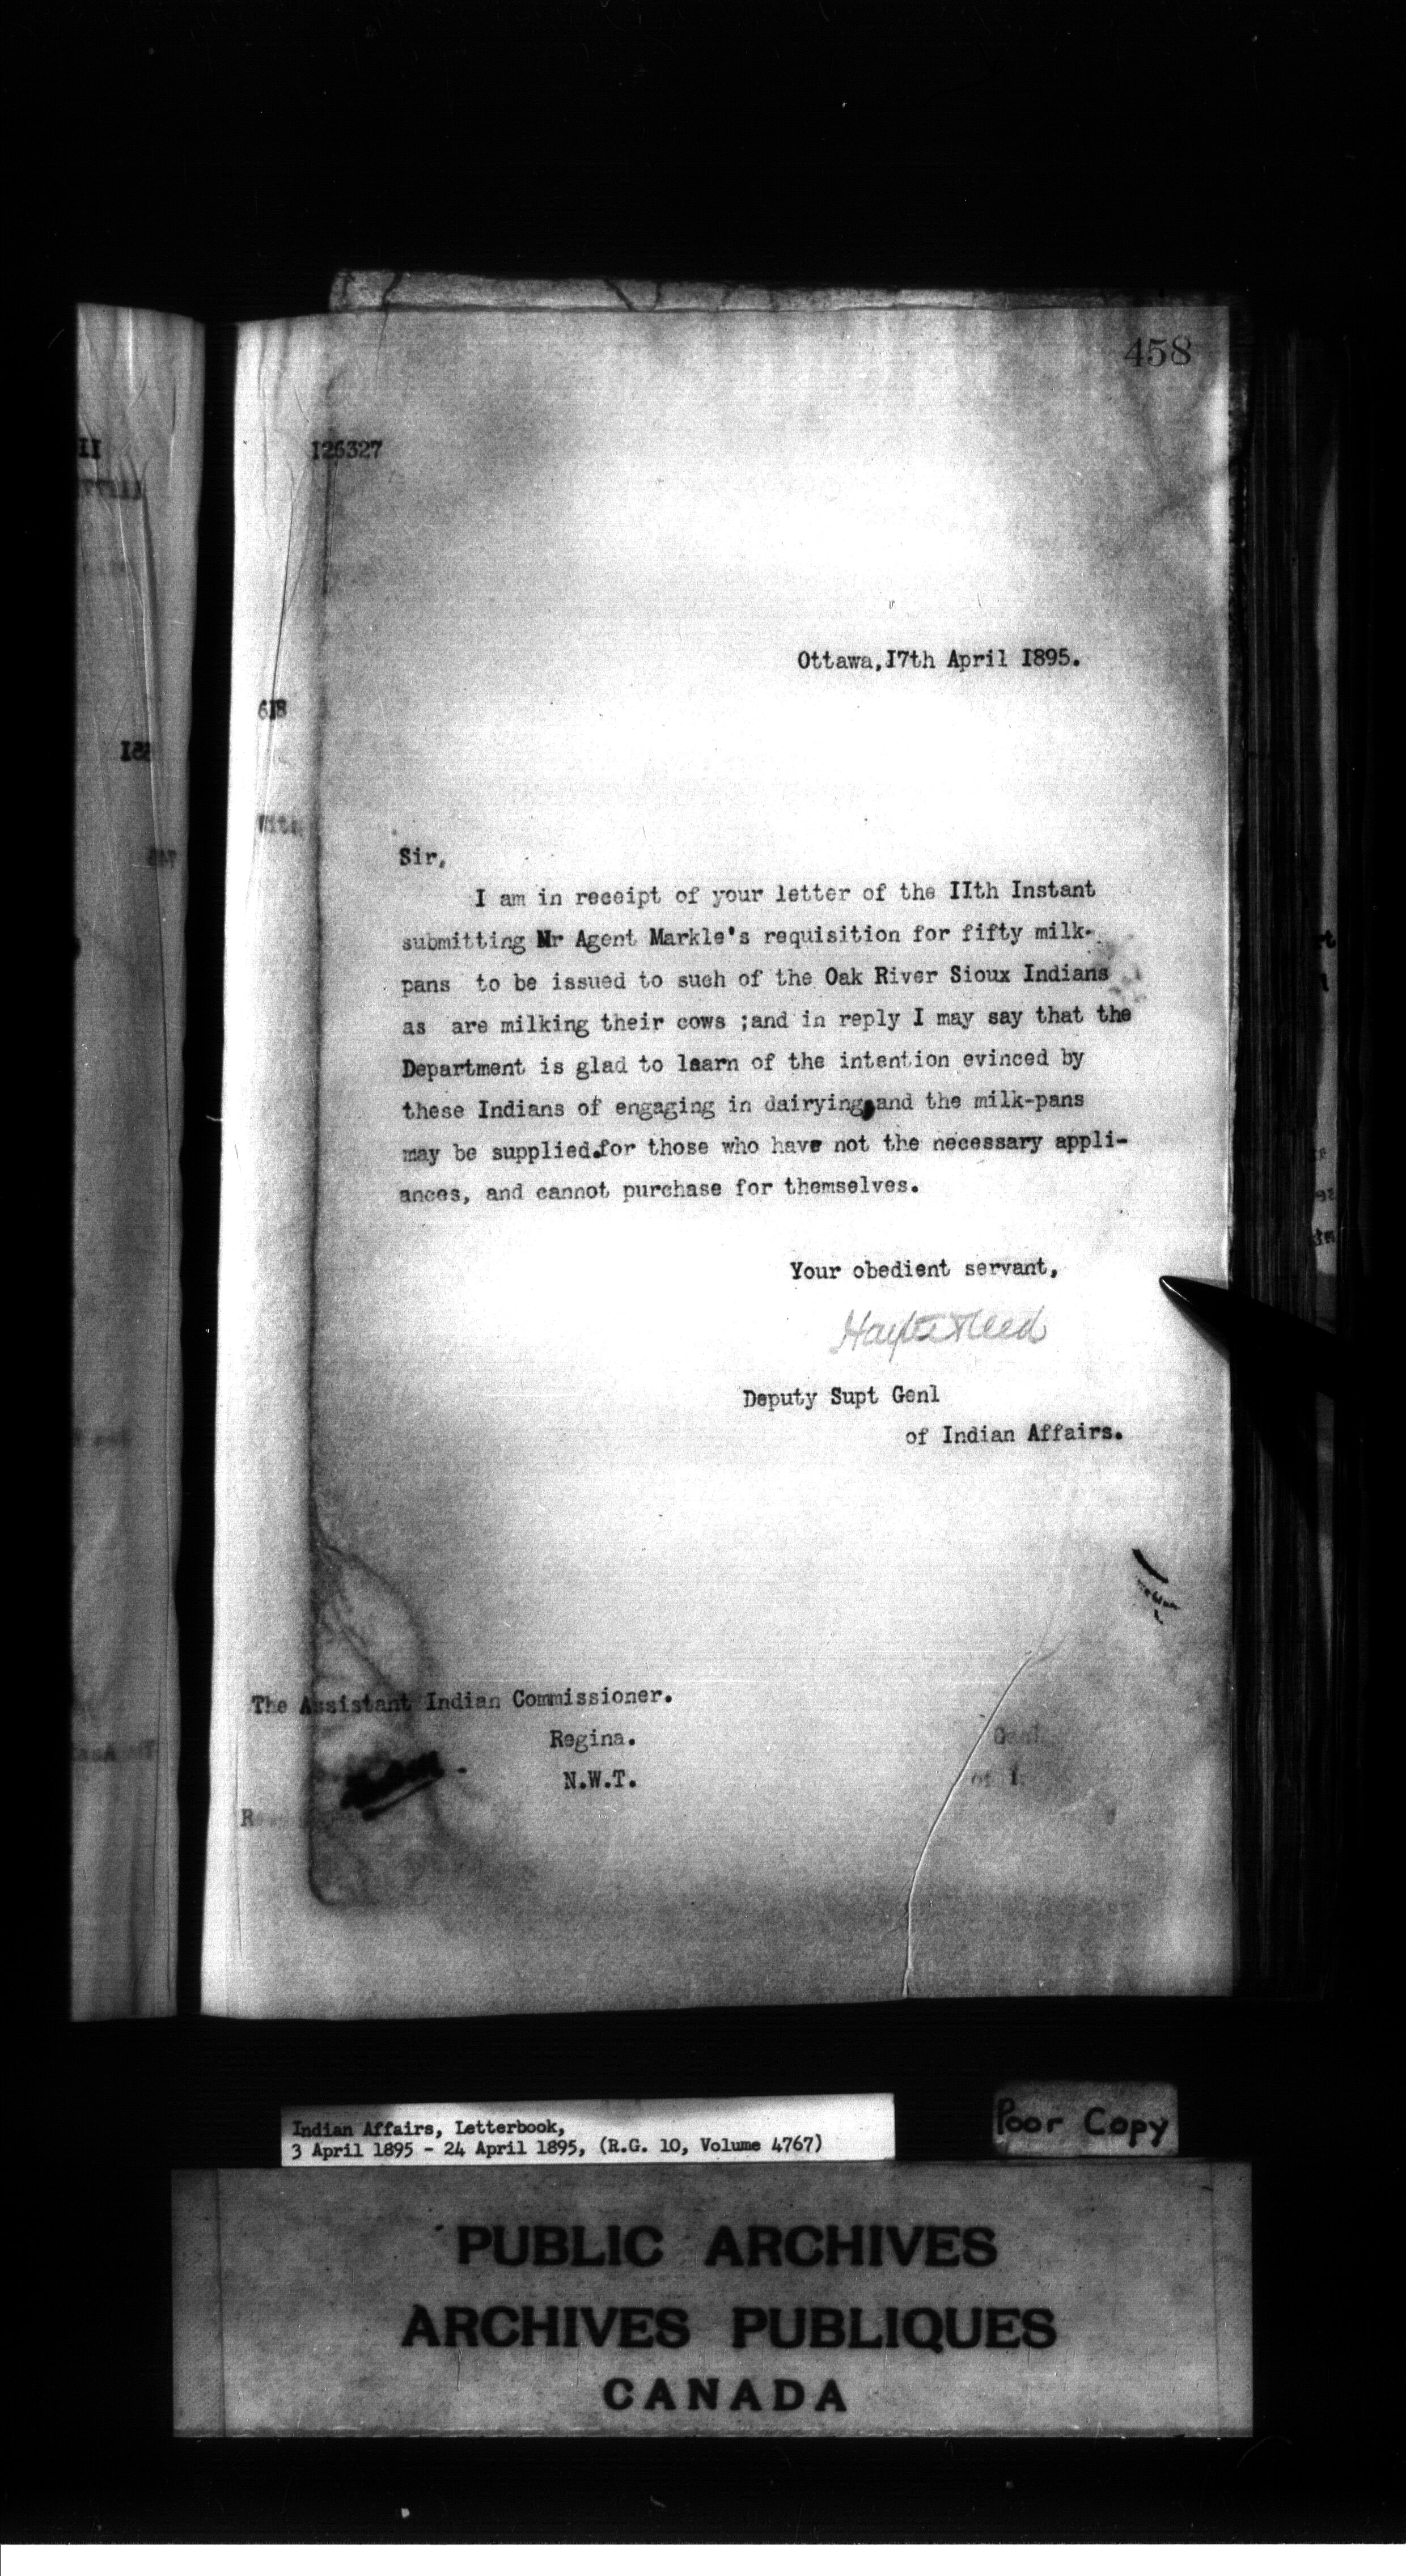 458
126327
Ottawa,I7th April I895.
Sir,
I am in receipt of your letter of the IIth Instant
submitting Mr Agent Markle's requisition for fifty milk-
pans to be issued to such of the Oak River Sioux Indians
as are milking their cows ;and in reply I may say that the
Department is glad to learn of the intention evinced by
these Indians of engaging in dairying,and the milk-pans
may be supplied.for those who have not the necessary appli-
ances, and cannot purchase for themselves.
Your obedient servant,
Hayter Reed
Deputy Supt Genl
of Indian Affairs.
The Assistant Indian Commissioner.
Regina.
N.W.T.
Indian Affairs, Letterbook,
3 April 1895 - 24 April 1895, (R.G. 10, Volume 4767)
Poor Copy
PUBLIC ARCHIVES
ARCHIVES PUBLIQUES
CANADA